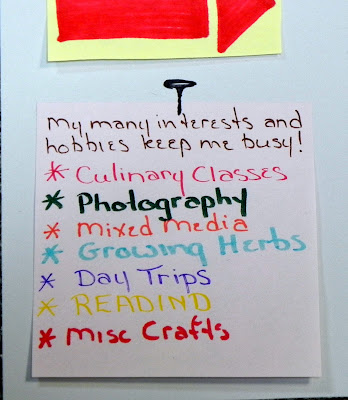 My many interests and
hobbies keep me busy!
* Culinary Classes
* Photography
* Mixed Media
* Growing Herbs
* Day Trips
* READIND
* Misc Crafts